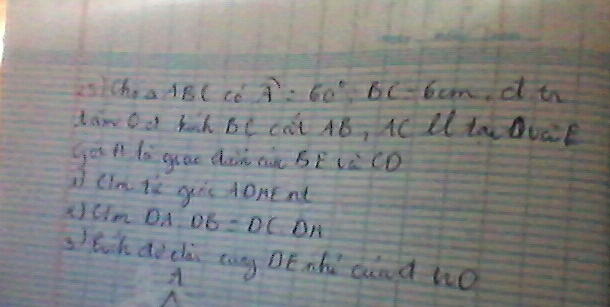 25) Cho △ABC có Â = 60°, BC = 6cm, đ tr
tâm O đ kính BC cắt AB, AC ll tại D và E
Gọi H là giao điểm của BE và CD
1) C/m tứ giác ADHE nt
2) C/m DA.DB = DC.DH
3) Tính độ dài cung DE nhỏ của đ
A